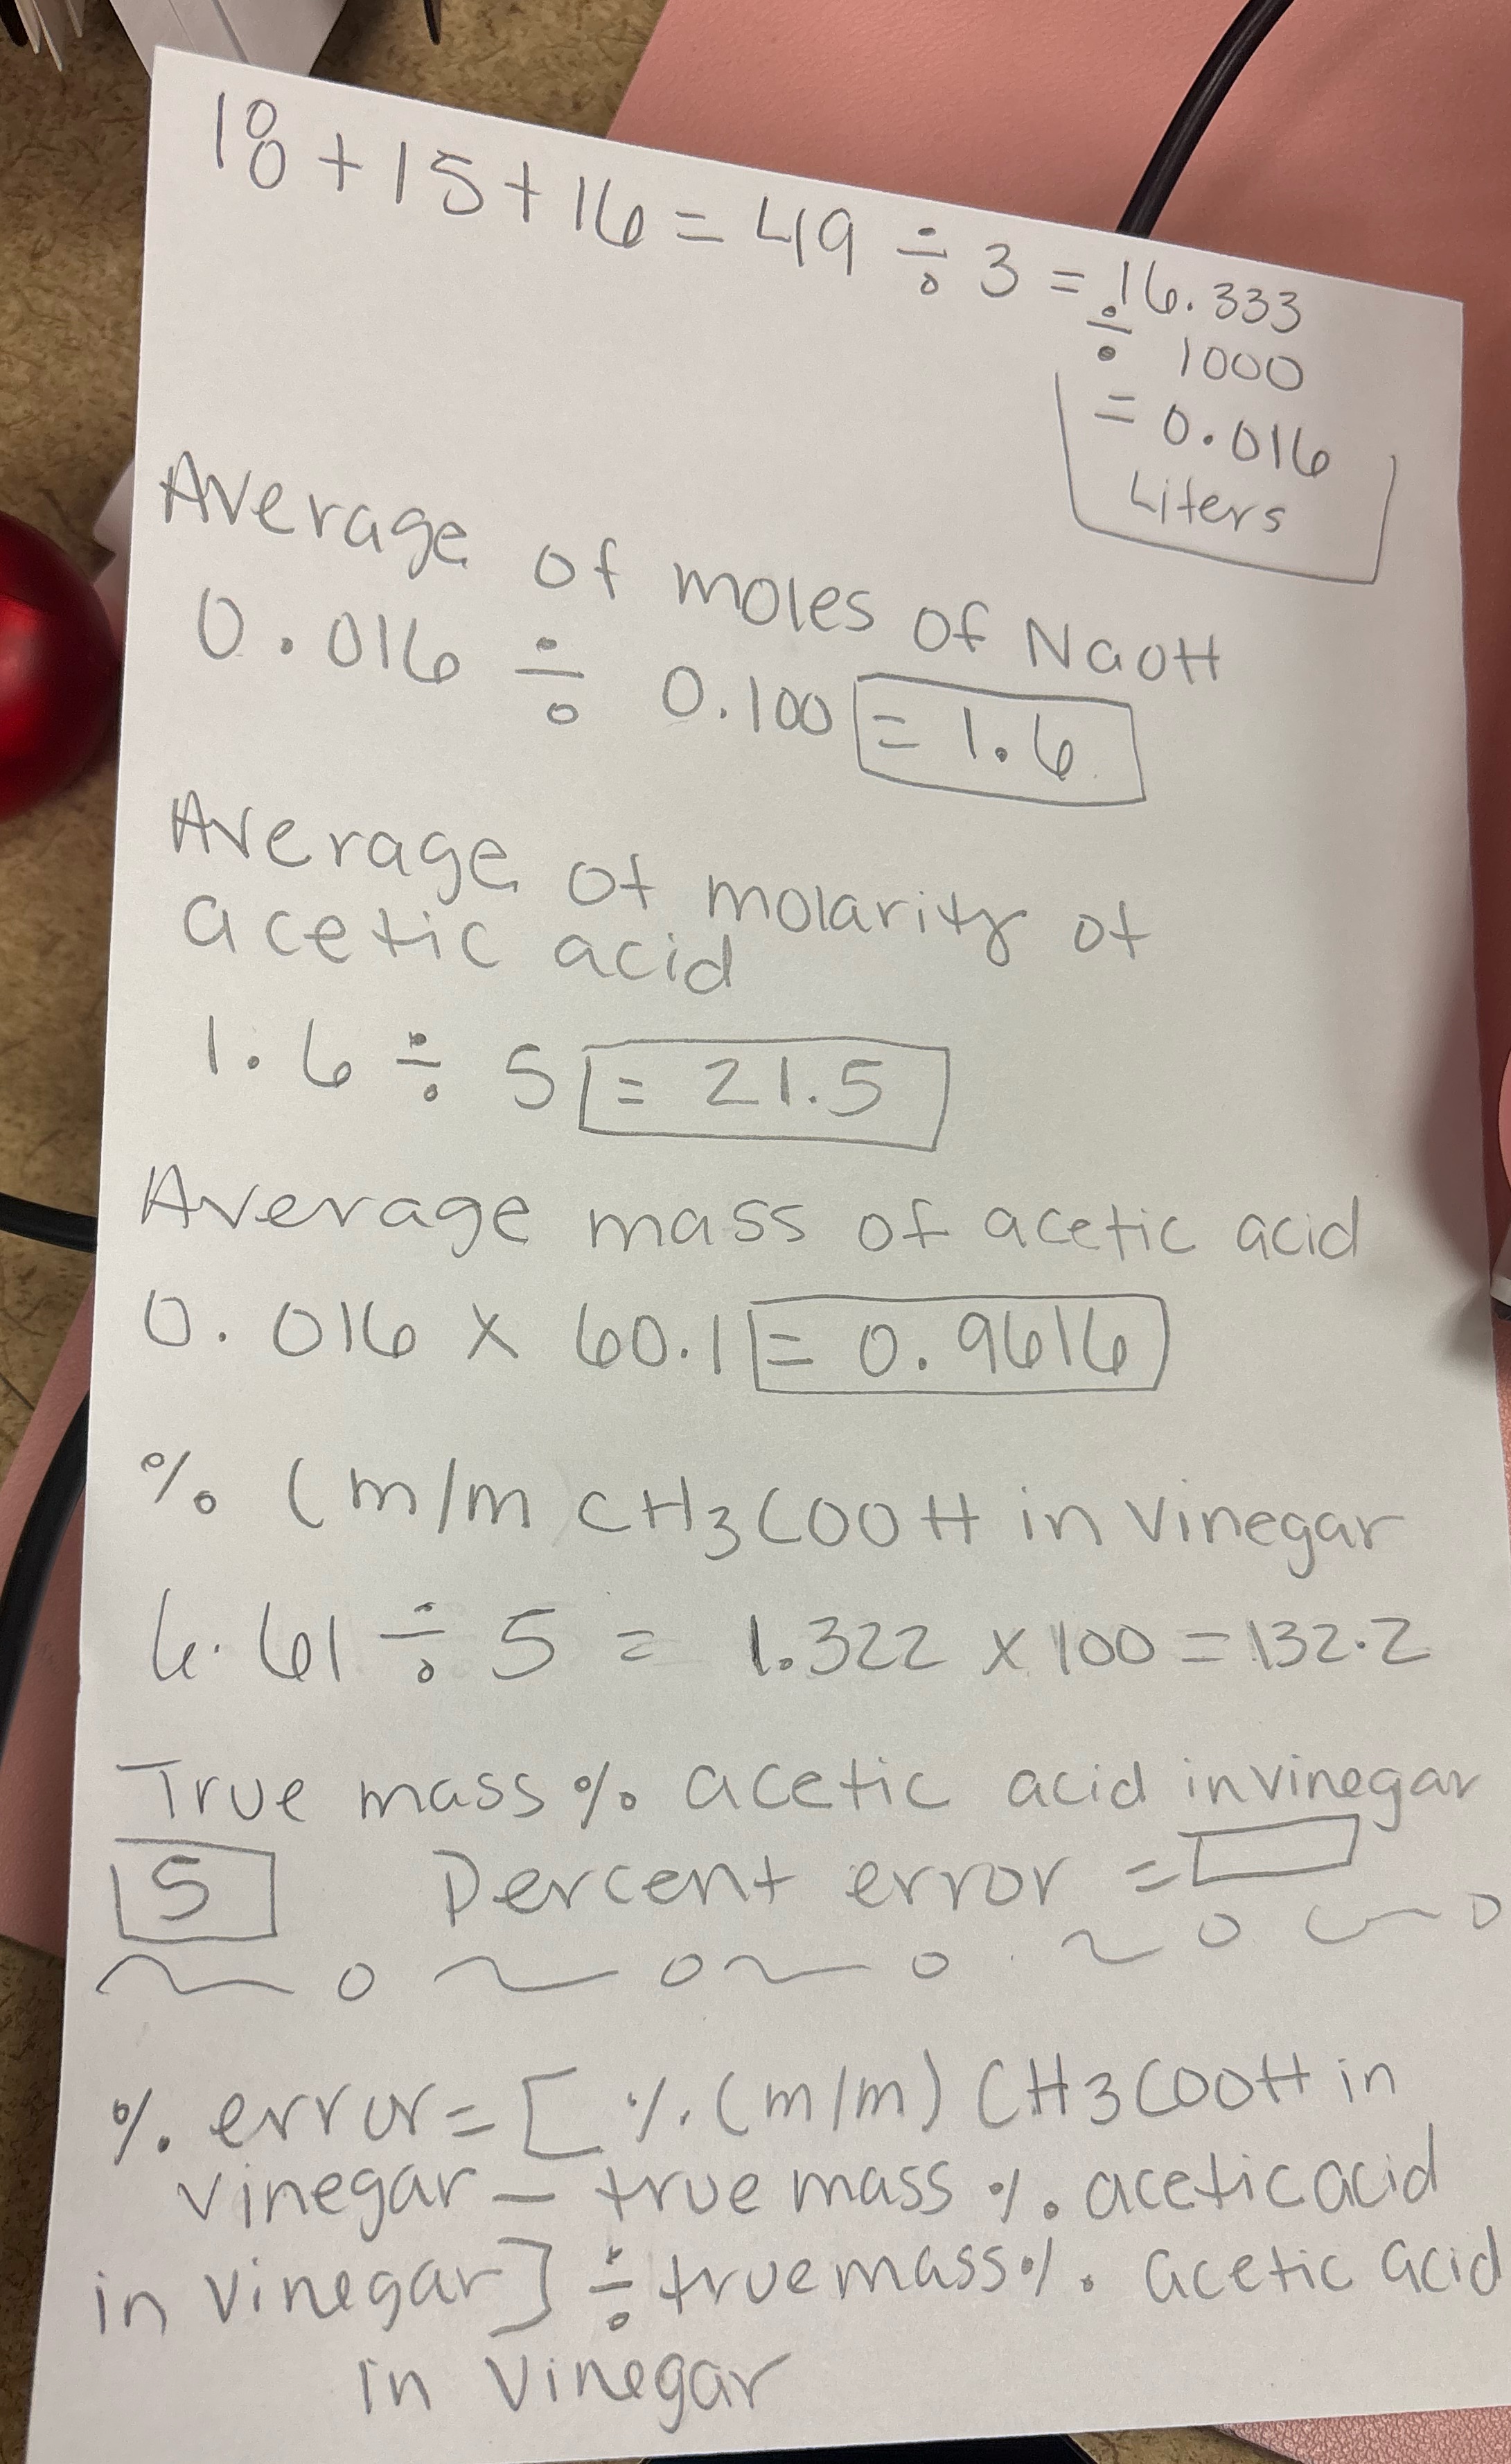 18 + 15 + 16 = 49 ÷ 3 = 16.333
÷ 1000
= 0.016
Liters
Average of moles of NaOH
0.016 ÷ 0.100 = 1.6
Average of molarity of
acetic acid
1.6 ÷ 5 = 21.5
Average mass of acetic acid
0.016 x 60.1 = 0.9616
% (m/m CH3COOH in vinegar
6.61 ÷ 5 = 1.322 x 100 = 132.2
True mass % acetic acid in vinegar
5 Percent error =
% error = [ % (m/m) CH3COOH in
vinegar — true mass % acetic acid
in vinegar] ÷ true mass % acetic acid
in vinegar